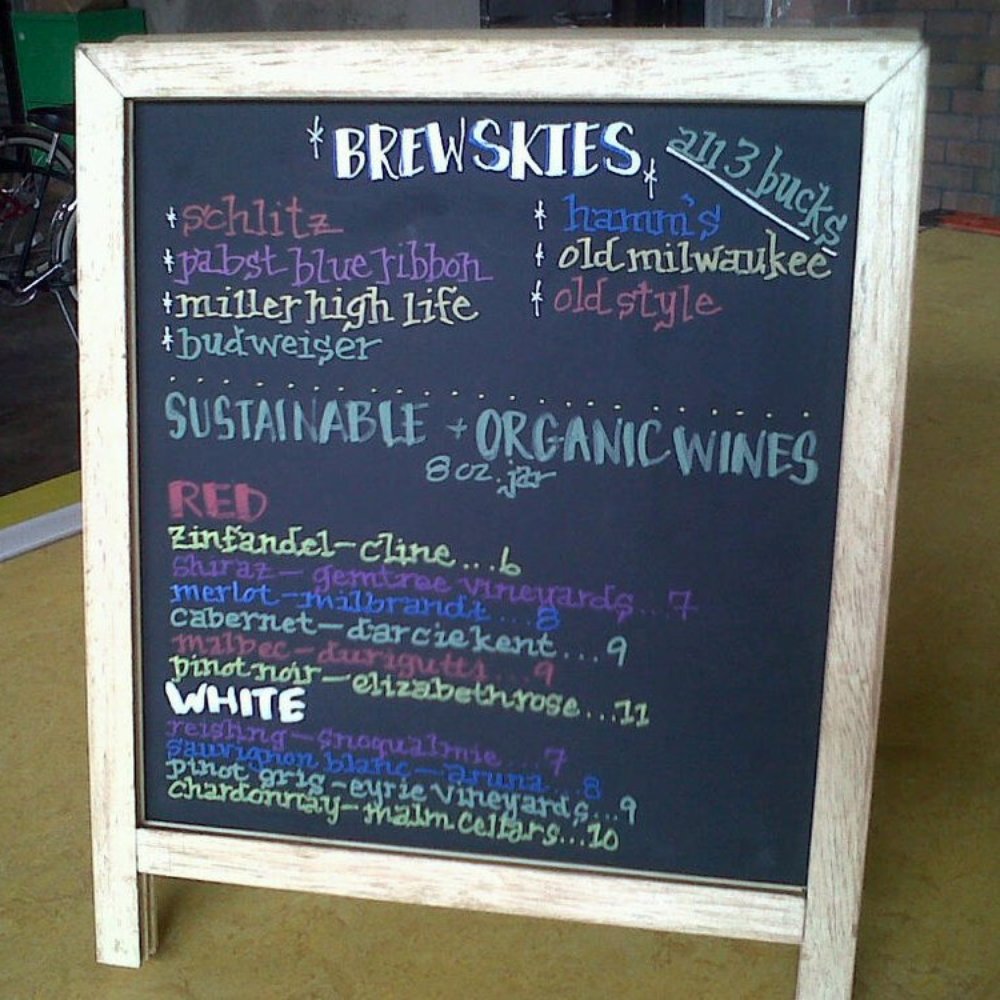 * BREWSKIES *
all 3 bucks
* schlitz
* pabst blue ribbon
* miller high life
* budweiser
* hamm's
* old milwaukee
* old style
SUSTAINABLE + ORGANIC WINES
8 oz. jar
RED
zinfandel - cline...6
shiraz - gemtree vineyards...7
merlot - milbrandt...8
cabernet - darcie kent...9
malbec - durigutti...9
pinot noir - elizabeth rose...11
WHITE
reisling - snoqualmie...7
sauvignon blanc - aruna...8
pinot gris - eyrie vineyards...9
chardonnay - malm cellars...10